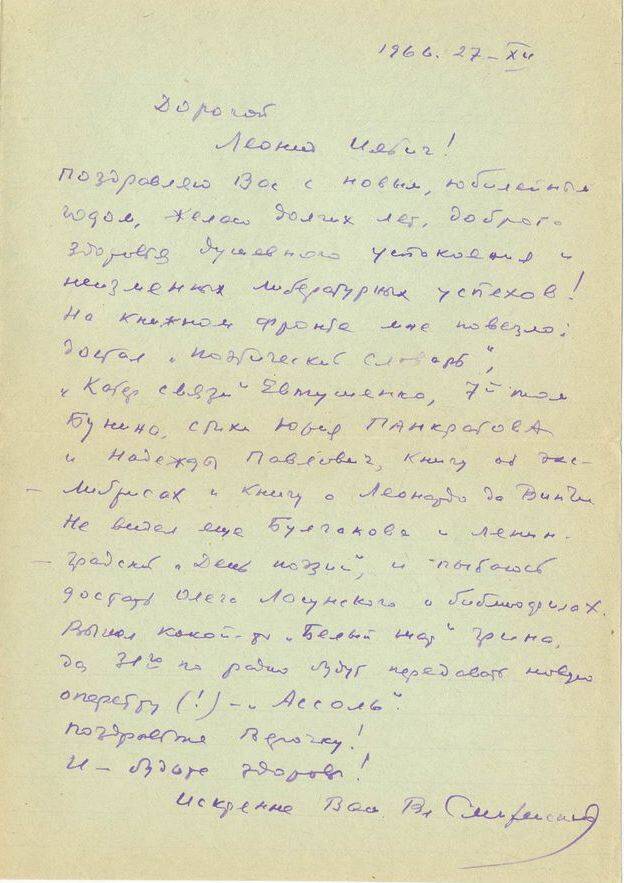 1966. 27-XII
Дорогой
Леонид Ильич!
Поздравляю Вас с новым, юбилейным
годом, желаю долгих лет, доброго
здоровья душевного успокоения и
неизменных литературных успехов!
На книжном фронте мне повезло:
достал „Поэтический словарь",
„Катер связи" Евтушенко, 7й том
Бунина, стихи Юрия ПАНКРАТОВА
и Надежды Павлович, книгу об экс-
либрисах и книгу о Леонардо да Винчи
Не видал еще Булгакова и ленин-
градский „День поэзии", и пытаюсь
достать Олега Ласунского о библиофилах.
Вышел какой-то „Белый шар" Грина,
да 31го по радио будут передавать новую
оперетту (!) - „Ассоль".
Поздравьте Верочку!
И - будьте здоровы!
Искренне Ваш Вл